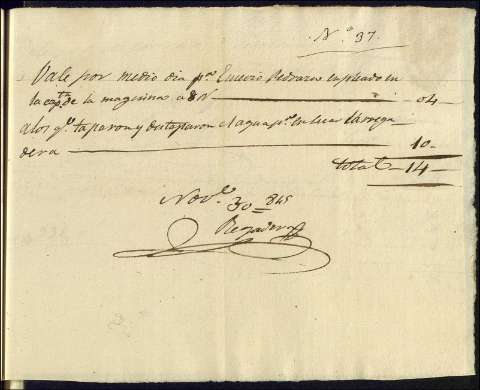 N.º 37.
Vale por medio dia p.ª Eusevio Pedraza empleado en
la de la magesinas a 8 r 04
a los q.e taparon y destaparon el agua p.ª
dera 10
total 14
Nov.e 30 845
Regadera